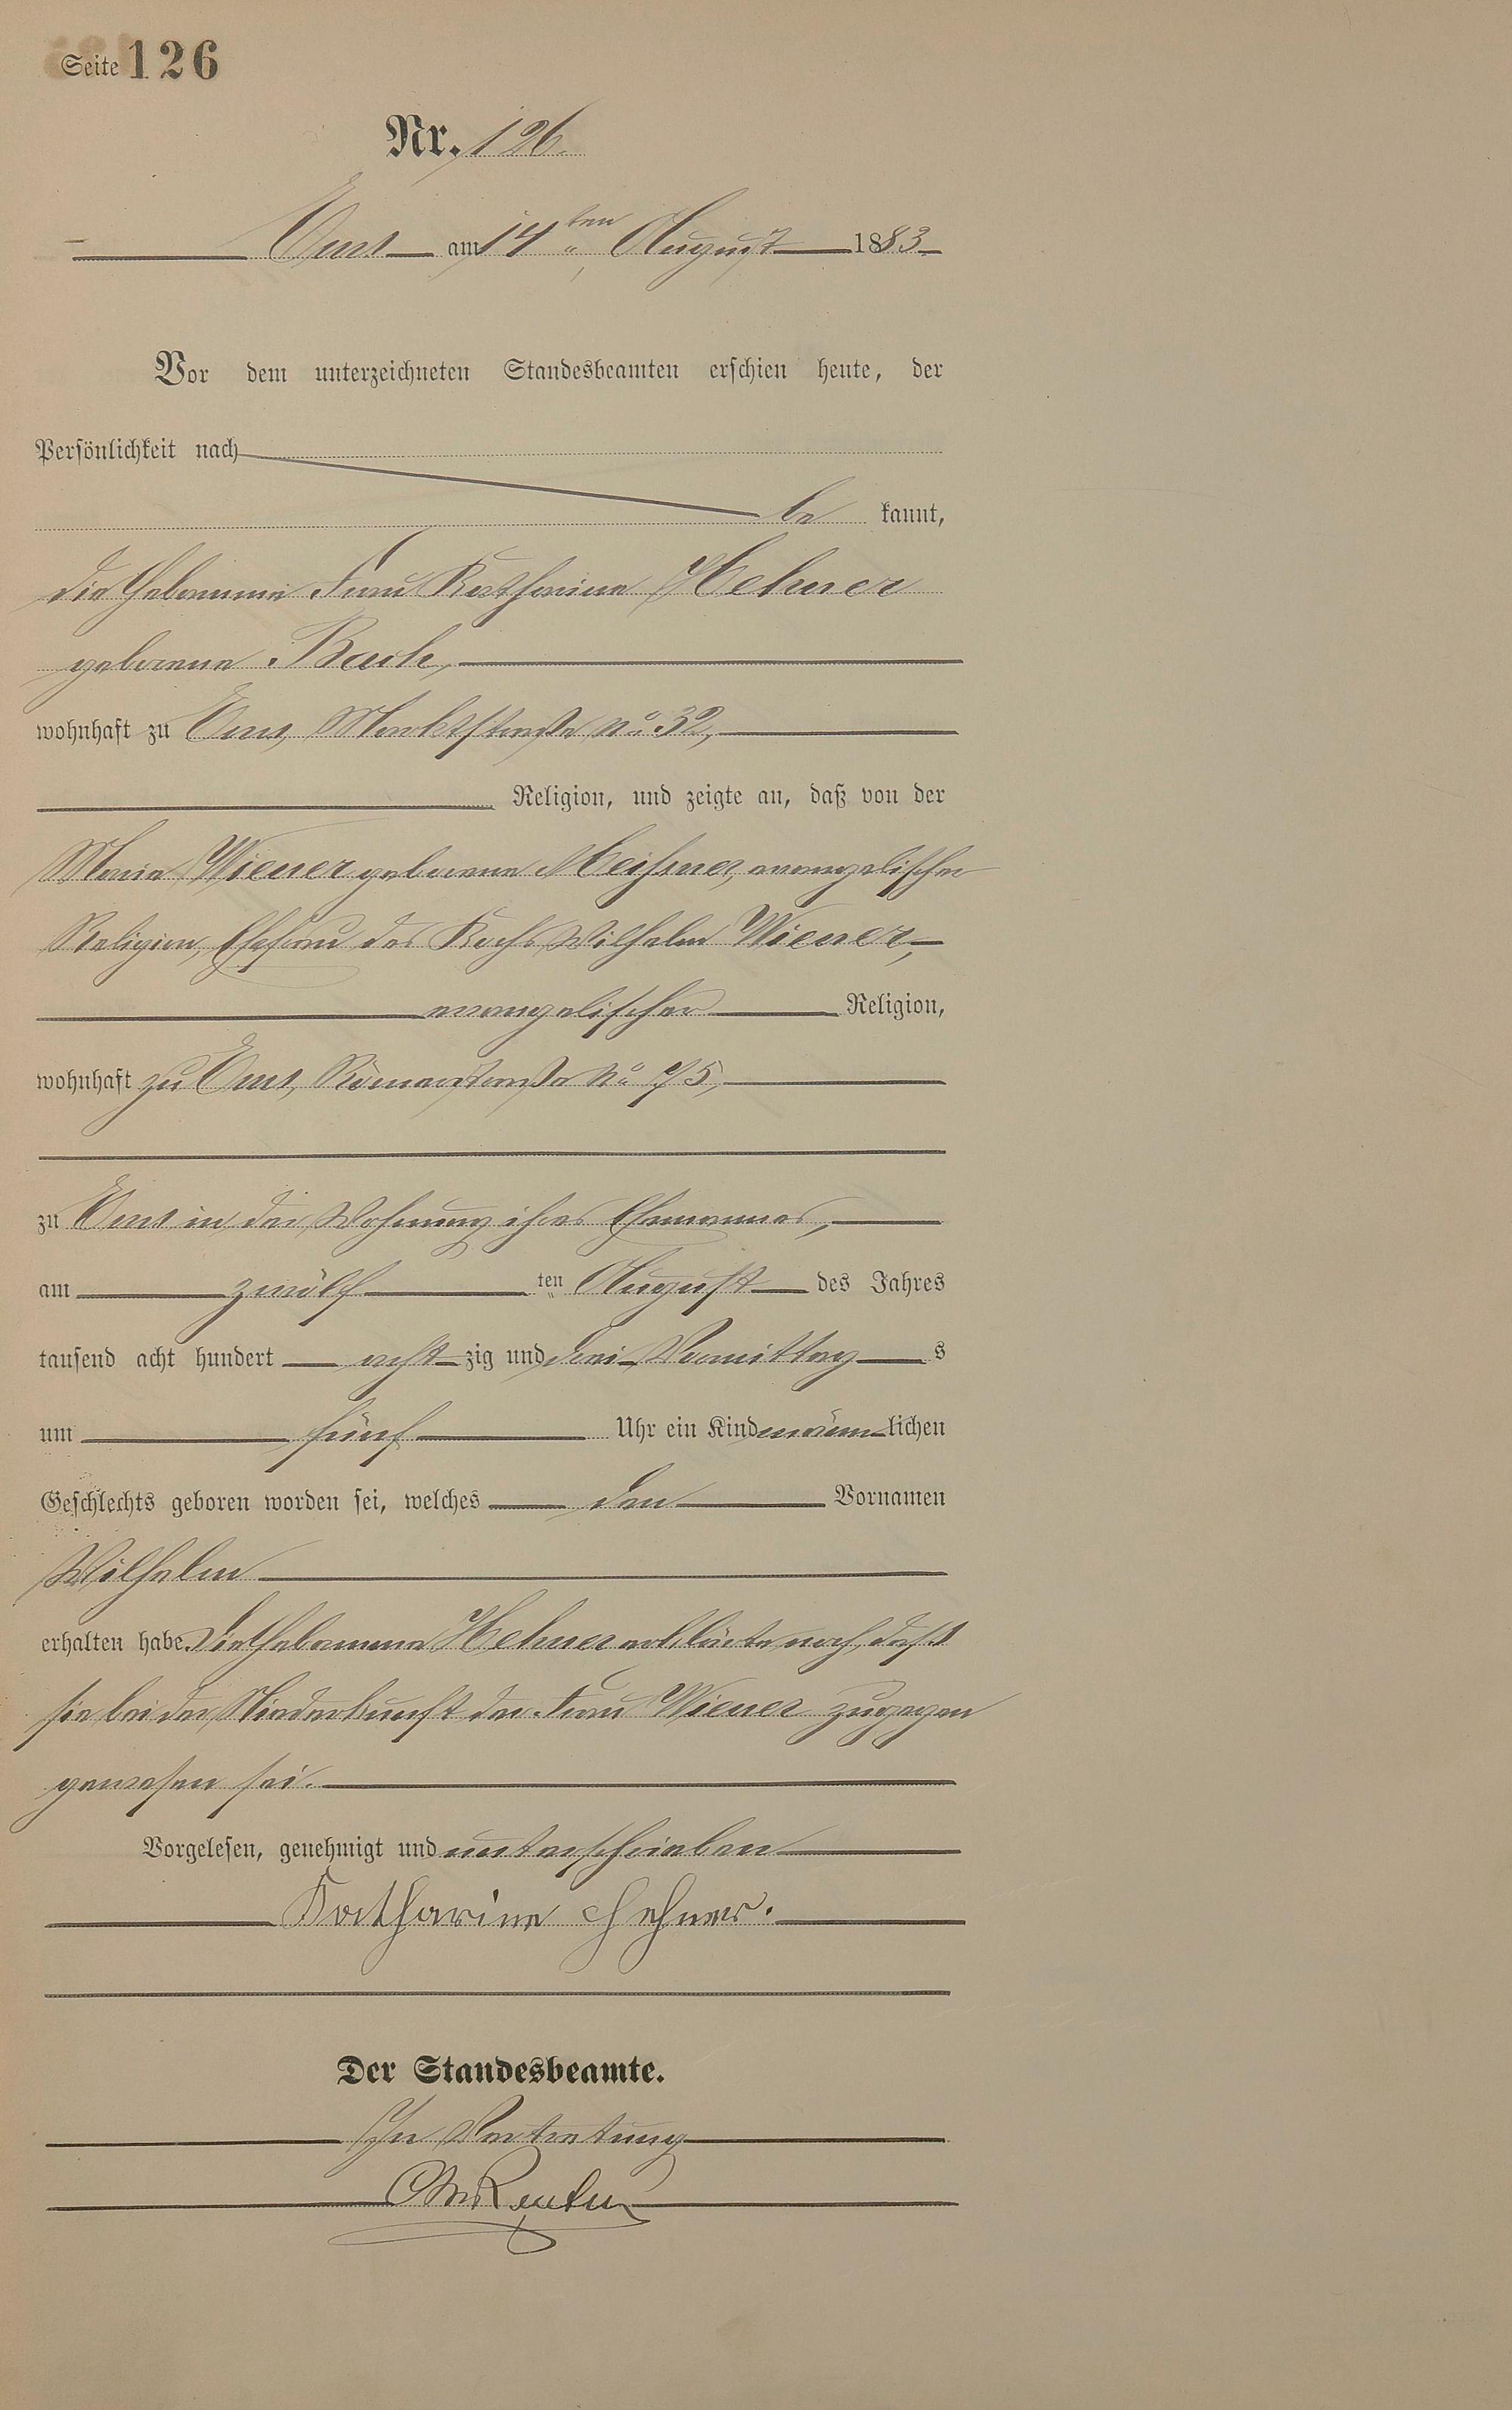 Seite 126
Nr. 126.
Ems am 14ten August 1883
Vor dem unterzeichneten Standesbeamten erschien heute, der
Persönlichkeit nach
be kannt,
die Hebamme Frau Katharina Hehner
geborene Bach,
wohnhaft zu Ems, Marktstraße No 32,
Religion, und zeigte an, daß von der
Maria Wiener geborene Meißner, evangelischer
Religion, Ehefrau des Kochs Wilhelm Wiener,
evangelischer Religion,
wohnhaft zu Ems, Römerstraße No 75,
zu Ems in der Wohnung ihres Ehemannes,
am zwölf ten August des Jahres
tausend acht hundert acht zig und drei Vormittag s
um fünf Uhr ein Kind männ lichen
Geschlechts geboren worden sei, welches den Vornamen
Wilhelm
erhalten habe. Die Hebamme Hehner erklärte noch, daß
sie bei der Niederkunft der Frau Wiener zugegen
gewesen sei.
Vorgelesen, genehmigt und unterschrieben
Katharina Hehner.
Der Standesbeamte.
In Vertretung